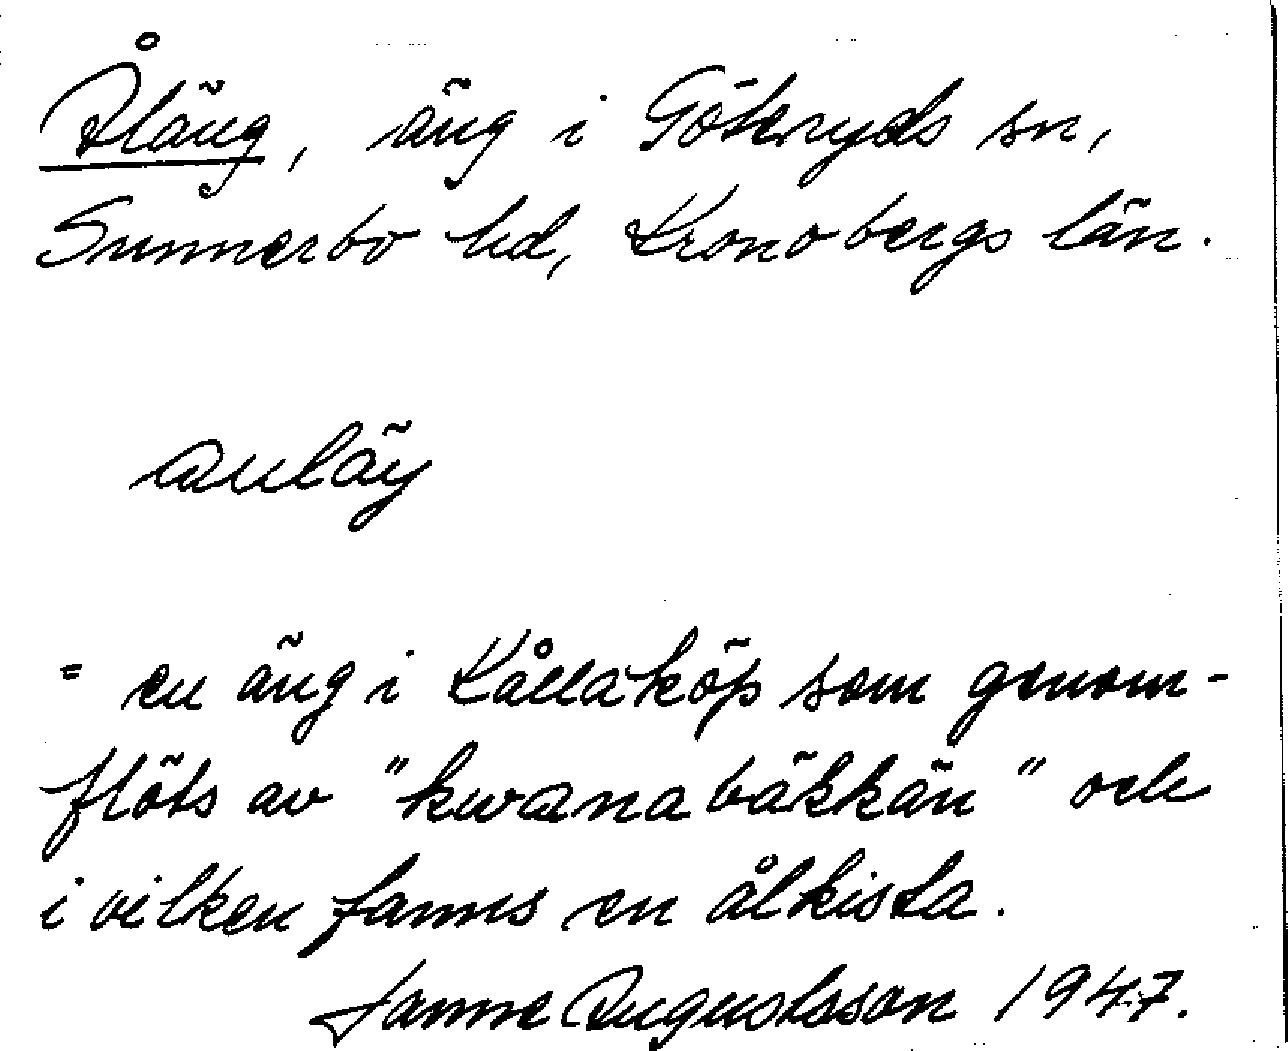 Åläng, äng i Göteryds sn,
Sunnerbo hd, Kronobergs län.
auläŋ
= en äng i Kållaköp som genom-
flöts av "kwarnabäkkän" och
i vilken fanns en ålkista.
Janne Augustsson 1947.